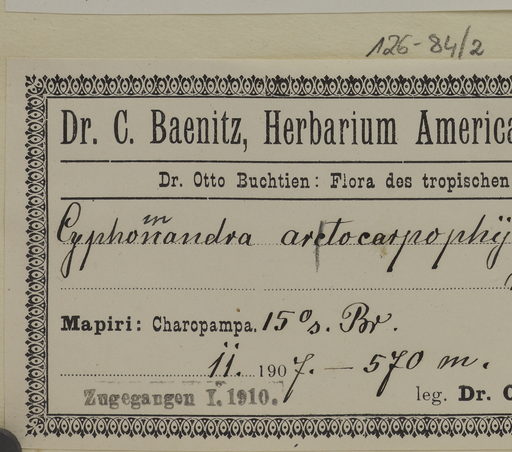 126-84/2
Dr. C. Baenitz, Herbarium America
Dr. Otto Buchtien: Flora des tropischen
Cyphomandra
Mapiri: Charopampa. 15° s. Br.
11. 1907. — 570 m.
Zugegangen I. 1910.
leg. Dr. O